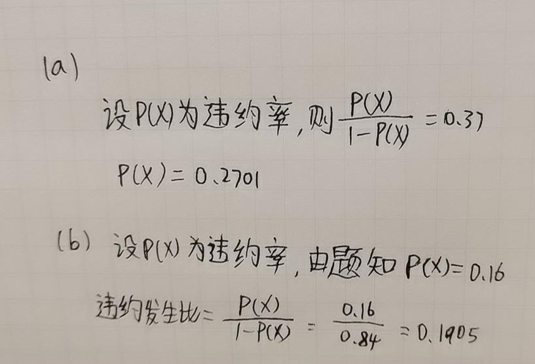 (a)
设P(X)为违约率,则 P(X)/(1-P(X)) = 0.37
P(X) = 0.2701
(b) 设P(X)为违约率,由题知 P(X)=0.16
违约发生比 = P(X)/(1-P(X)) = 0.16/0.84 = 0.1905